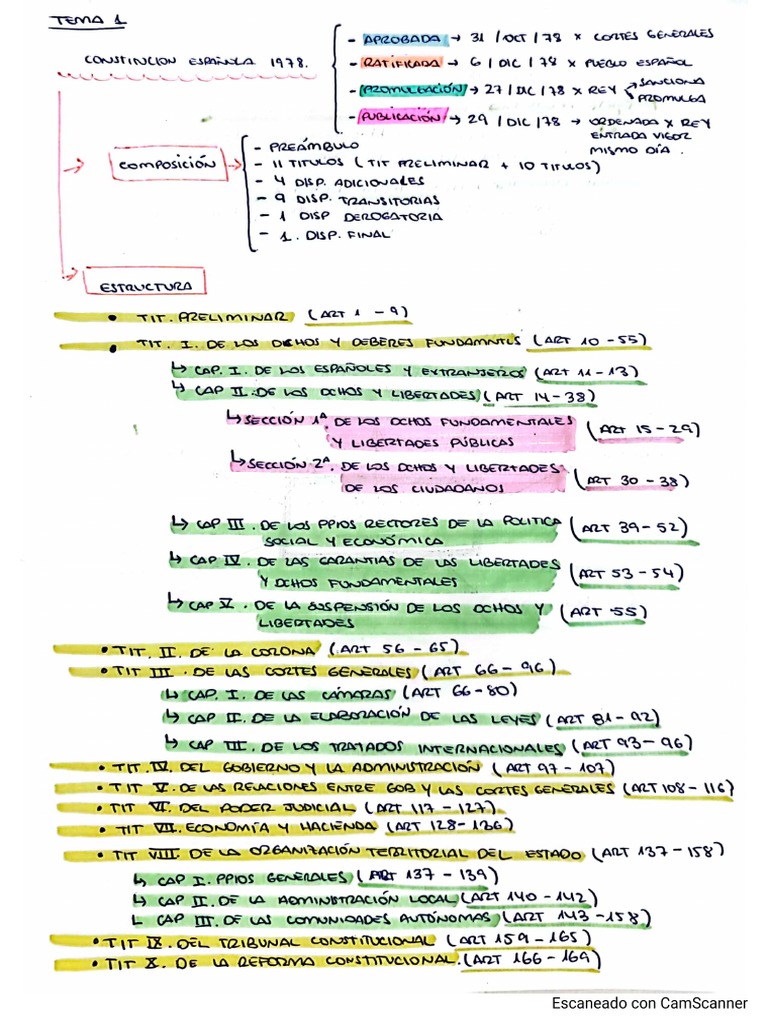 TEMA 1
CONSTITUCION ESPAÑOLA 1978.
- APROBADA → 31 / OCT / 78 x CORTES GENERALES
- RATIFICADA → 6 / DIC / 78 x PUEBLO ESPAÑOL
- PROMULGACIÓN → 27 / DIC / 78 x REY → SANCIONA
PROMULGA
- PUBLICACIÓN → 29 / DIC / 78 → ORDENADA x REY
ENTRADA VIGOR
MISMO DÍA.
COMPOSICIÓN
- PREÁMBULO
- 11 TITULOS (TIT PRELIMINAR + 10 TITULOS)
- 4 DISP. ADICIONALES
- 9 DISP. TRANSITORIAS
- 1 DISP DEROGATORIA
- 1. DISP. FINAL
ESTRUCTURA
• TIT. PRELIMINAR (ART 1 - 9)
• TIT. I. DE LOS DCHOS Y DEBERES FUNDAMNTLS (ART 10 - 55)
↳ CAP. I. DE LOS ESPAÑOLES Y EXTRANJEROS (ART 11 - 13)
↳ CAP II. DE LOS DCHOS Y LIBERTADES (ART 14 - 38)
↳ SECCIÓN 1ª. DE LOS DCHOS FUNDAMENTALES
Y LIBERTADES PÚBLICAS (ART 15 - 29)
↳ SECCIÓN 2ª. DE LOS DCHOS Y LIBERTADES
DE LOS CIUDADANOS (ART 30 - 38)
↳ CAP III. DE LOS PPIOS RECTORES DE LA POLITICA
SOCIAL Y ECONÓMICA (ART 39 - 52)
↳ CAP IV. DE LAS GARANTIAS DE LAS LIBERTADES
Y DCHOS FUNDAMENTALES (ART 53 - 54)
↳ CAP V. DE LA SUSPENSIÓN DE LOS DCHOS Y
LIBERTADES (ART 55)
• TIT. II. DE LA CORONA (ART 56 - 65)
• TIT III. DE LAS CORTES GENERALES (ART 66 - 96)
↳ CAP. I. DE LAS CÁMARAS (ART 66 - 80)
↳ CAP II. DE LA ELABORACIÓN DE LAS LEYES (ART 81 - 92)
↳ CAP III. DE LOS TRATADOS INTERNACIONALES (ART 93 - 96)
• TIT. IV. DEL GOBIERNO Y LA ADMINISTRACIÓN (ART 97 - 107)
• TIT V. DE LAS RELACIONES ENTRE GOB Y LAS CORTES GENERALES (ART 108 - 116)
• TIT VI. DEL PODER JUDICIAL (ART 117 - 127)
• TIT VII. ECONOMÍA Y HACIENDA (ART 128 - 136)
• TIT VIII. DE LA ORGANIZACIÓN TERRITORIAL DEL ESTADO (ART 137 - 158)
↳ CAP I. PPIOS GENERALES (ART 137 - 139)
↳ CAP II. DE LA ADMINISTRACIÓN LOCAL (ART 140 - 142)
↳ CAP III. DE LAS COMUNIDADES AUTÓNOMAS (ART 143 - 158)
• TIT IX. DEL TRIBUNAL CONSTITUCIONAL (ART 159 - 165)
• TIT X. DE LA REFORMA CONSTITUCIONAL. (ART 166 - 169)
Escaneado con CamScanner